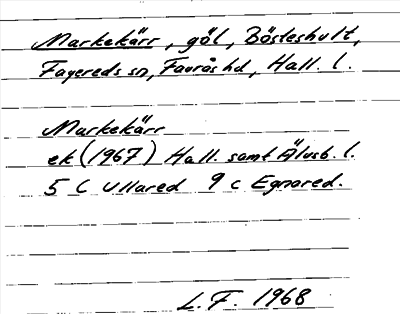 Markekärr, göl, Bösteshult,
Fagereds sn, Faurås hd, Hall. l.
Markekärr
ek (1967) Hall. samt Älvsb. l.
5 C Ullared 9 c Egnared.
L.F. 1968